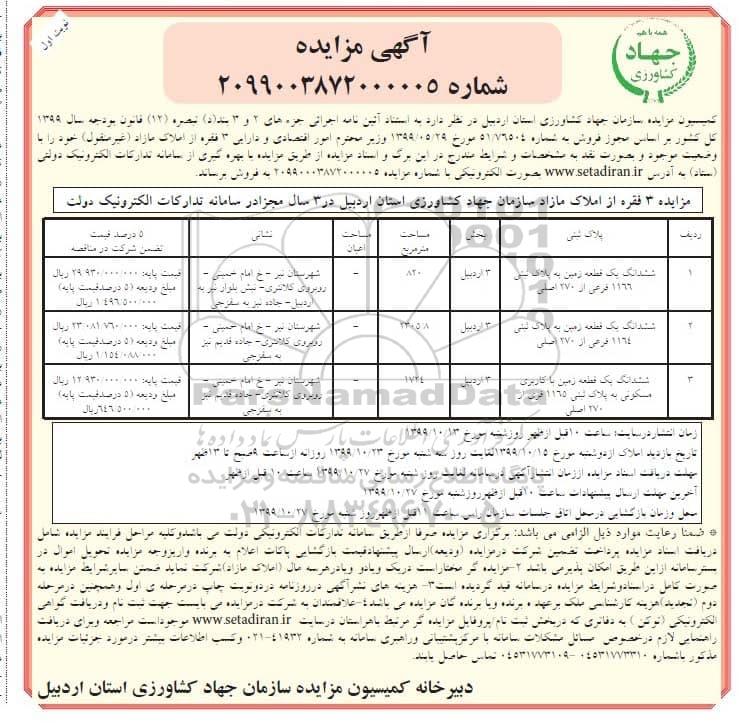 نوبت اول
همه با هم
جهاد
کشاورزی
آگهی مزایده
شماره ۲۰۹۹۰۰۳۸۷۲۰۰۰۰۰۵
کمیسیون مزایده سازمان جهاد کشاورزی استان اردبیل در نظر دارد به استناد آئین نامه اجرائی جزء های ۲ و ۳ بند(د) تبصره (۱۲) قانون بودجه سال ۱۳۹۹
کل کشور بر اساس مجوز فروش به شماره ۵۱/۷۶۵۰۴ مورخ ۱۳۹۹/۰۵/۲۹ وزیر محترم امور اقتصادی و دارایی ۳ فقره از املاک مازاد (غیرمنقول) خود را با
وضعیت موجود و بصورت نقد به مشخصات و شرایط مندرج در این برگ و اسناد مزایده از طریق مزایده با بهره گیری از سامانه تدارکات الکترونیک دولتی
(ستاد) به آدرس www.setadiran.ir بصورت الکترونیکی با شماره مزایده ۲۰۹۹۰۰۳۸۷۲۰۰۰۰۰۵ به فروش برساند.
مزایده ۳ فقره از املاک مازاد سازمان جهاد کشاورزی استان اردبیل در۳ سال مجزادر سامانه تدارکات الکترونیک دولت
ردیف پلاک ثبتی بخش مساحت مترمربع مساحت اعیان نشانی ۵ درصد قیمت تضمن شرکت در مناقصه
۱ ششدانگ یک قطعه زمین به پلاک ثبتی ۱۱۶۶ فرعی از ۲۷۰ اصلی ۳ اردبیل ۸۲۰ - شهرستان نیر – خ امام خمینی – روبروی کلانتری- نبش بلوار نیر به اردبیل- جاده نیز به سقزچی قیمت پایه: ۲۹/۹۳۰/۰۰۰/۰۰۰ ریال مبلغ ودیعه (۵ درصدقیمت پایه) ۱/۴۹۶/۵۰۰/۰۰۰ ریال
۲ ششدانگ یک قطعه زمین به پلاک ثبتی ۱۱۶۴ فرعی از ۲۷۰ اصلی ۳ اردبیل ۲۳۰۵/۸ - شهرستان نیر – خ امام خمینی – روبروی کلانتری- جاده قدیم نیز به سقزچی قیمت پایه: ۲۳/۰۸۱/۷۶۰/۰۰۰ ریال مبلغ ودیعه (۵ درصدقیمت پایه) ۱/۱۵۴/۰۸۸/۰۰۰ ریال
۳ ششدانگ یک قطعه زمین با کاربری مسکونی به پلاک ثبتی ۱۱۶۵ فرعی از ۲۷۰ اصلی ۳ اردبیل ۱۷۲۴ - شهرستان نیر – خ امام خمینی – روبروی کلانتری- جاده قدیم نیز به سقزچی قیمت پایه: ۱۲/۹۳۰/۰۰۰/۰۰۰ ریال مبلغ ودیعه (۵ درصدقیمت پایه) ۶۴۶/۵۰۰/۰۰۰ریال
زمان انتشاردرسایت: ساعت ۱۰قبل ازظهر روزشنبه مورخ ۱۳۹۹/۱۰/۱۳
تاریخ بازدید املاک ازدوشنبه مورخ ۱۳۹۹/۱۰/۱۵لغایت روز سه شنبه مورخ ۱۳۹۹/۱۰/۲۳ روزانه ازساعت ۹صبح تا ۱۳ظهر
مهلت دریافت اسناد مزایده اززمان انتشارآگهی درسامانه لغایت روز شنبه مورخ ۱۳۹۹/۱۰/۲۷ ساعت ۱۰ قبل ازظهر
آخرین مهلت ارسال پیشنهادات ساعت ۱۰قبل ازظهرروزشنبه مورخ ۱۳۹۹/۱۰/۲۷
محل وزمان بازگشایی درمحل اتاق جلسات سازمان راس ساعت ۱۱قبل ازظهرروز شنبه مورخ ۱۳۹۹/۱۰/۲۷
* ضمنا رعایت موارد ذیل الزامی می باشد: برگزاری مزایده صرفا ازطریق سامانه تدارکات الکترونیکی دولت می باشدوکلیه مراحل فرایند مزایده شامل
دریافت اسناد مزایده پرداخت تضمین شرکت درمزایده (ودیعه)ارسال پیشنهادقیمت بازگشایی پاکات اعلام به برنده واریزوجه مزایده تحویل اموال در
بسترسامانه ازاین طریق امکان پذیرمی باشد ۲-مزایده گر مختاراست دریک ویادو ویادرهرسه مال (املاک مازاد)شرکت نماید ضمنن سایرشرایط مزایده به
صورت کامل دراسنادوشرایط مزایده درسامانه قید گردیده است۳- هزینه های نشرآگهی درروزنامه دردونوبت چاپ درمرحله ی اول وهمچنین درمرحله
دوم (تجدید)هزینه کارشناسی ملک برعهد ه برنده ویا برنده گان مزایده می باشد۴-علاقمندان به شرکت درمزایده می بایست جهت ثبت نام ودریافت گواهی
الکترونیکی (توکن ) به دفاتری که دربخش ثبت نام/پروفایل مزایده گر مرتبط باهراستان درسایت www.setadiran.ir موجوداست مراجعه وبرای دریافت
راهنمایی لازم درخصوص مسائل مشکلات سامانه با مرکزپشتیبانی وراهبری سامانه به شماره ۴۱۹۳۲-۰۲۱ وکسب اطلاعات بیشتر درمورد جزئیات مزایده
مذکور باشماره ۰۴۵۳۱۷۷۳۳۱۰ -۰۴۵۳۱۷۷۳۱۰۹ تماس حاصل یابند.
دبیرخانه کمیسیون مزایده سازمان جهاد کشاورزی استان اردبیل
ParsNamadData
پایگاه اطلاع رسانی مناقصه و مزایده
۰۲۱-۸۸۳۴۹۶۷۰-۵